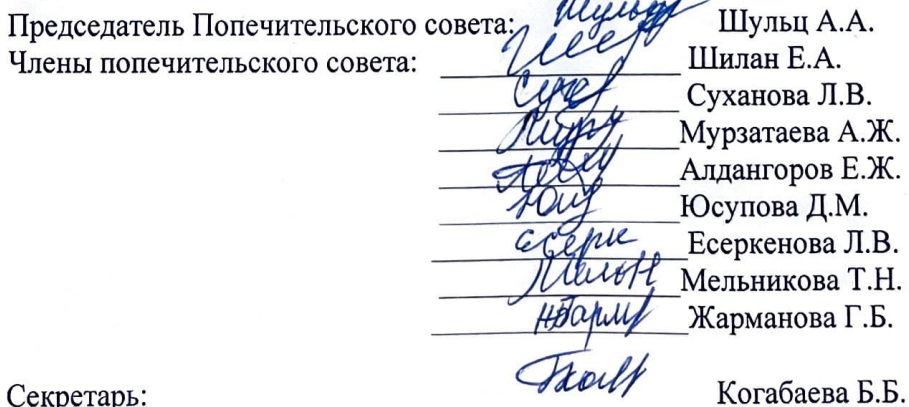 Председатель Попечительского совета: Шульц А.А.
Члены попечительского совета: Шилан Е.А.
Суханова Л.В.
Мурзатаева А.Ж.
Алдангоров Е.Ж.
Юсупова Д.М.
Есеркенова Л.В.
Мельникова Т.Н.
Жарманова Г.Б.
Секретарь: Когабаева Б.Б.